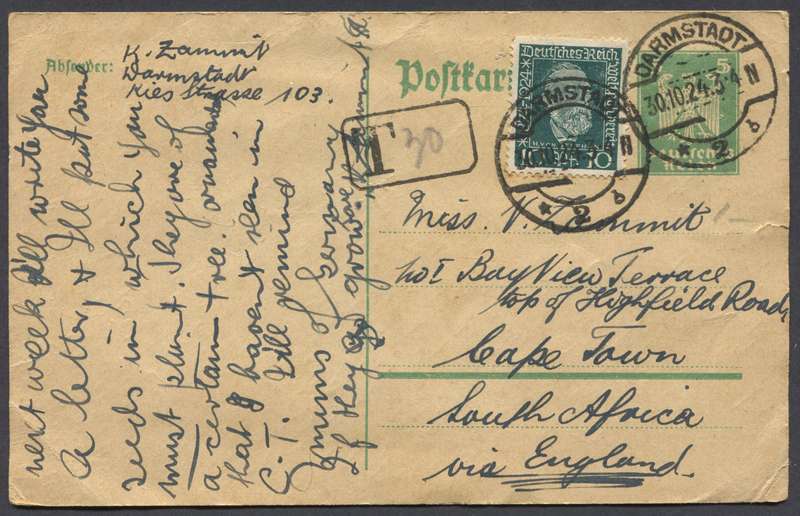 Absender:
K. Zammit
Darmstadt
Kies Strasse 103.
Postkar
Deutsches Reich
1924
10
DARMSTADT
30.10.24.3-4 N
* 2 b
DARMSTADT
30.10.24.3-4 N
* 2 b
5
T 20
Miss. V. Zammit
no 1 Bay View Terrace
top of Highfield Road
Cape Town
South Africa
via England.
next week I'll write you
a letter, & I'll put some
seeds in, which you
must plant. They are of
a certain tree. ornament
that I haven't seen in
C.T. I'll remind
of Germany
If they grow